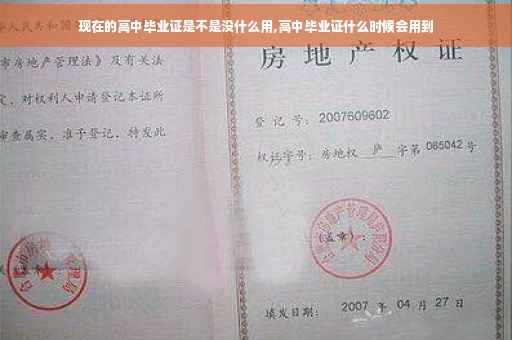 现在的高中毕业证是不是没什么用,高中毕业证什么时候会用到
华人民共和国
市房地产管理法》及有关法
定，对权利人申请登记本证所
审查属实，准予登记，特发此
房地产权证
登记号：2007609602
权证字号：房地权 庐 字第 085042 号
(盖章)：
填发日期：2007 年 04 月 27 日